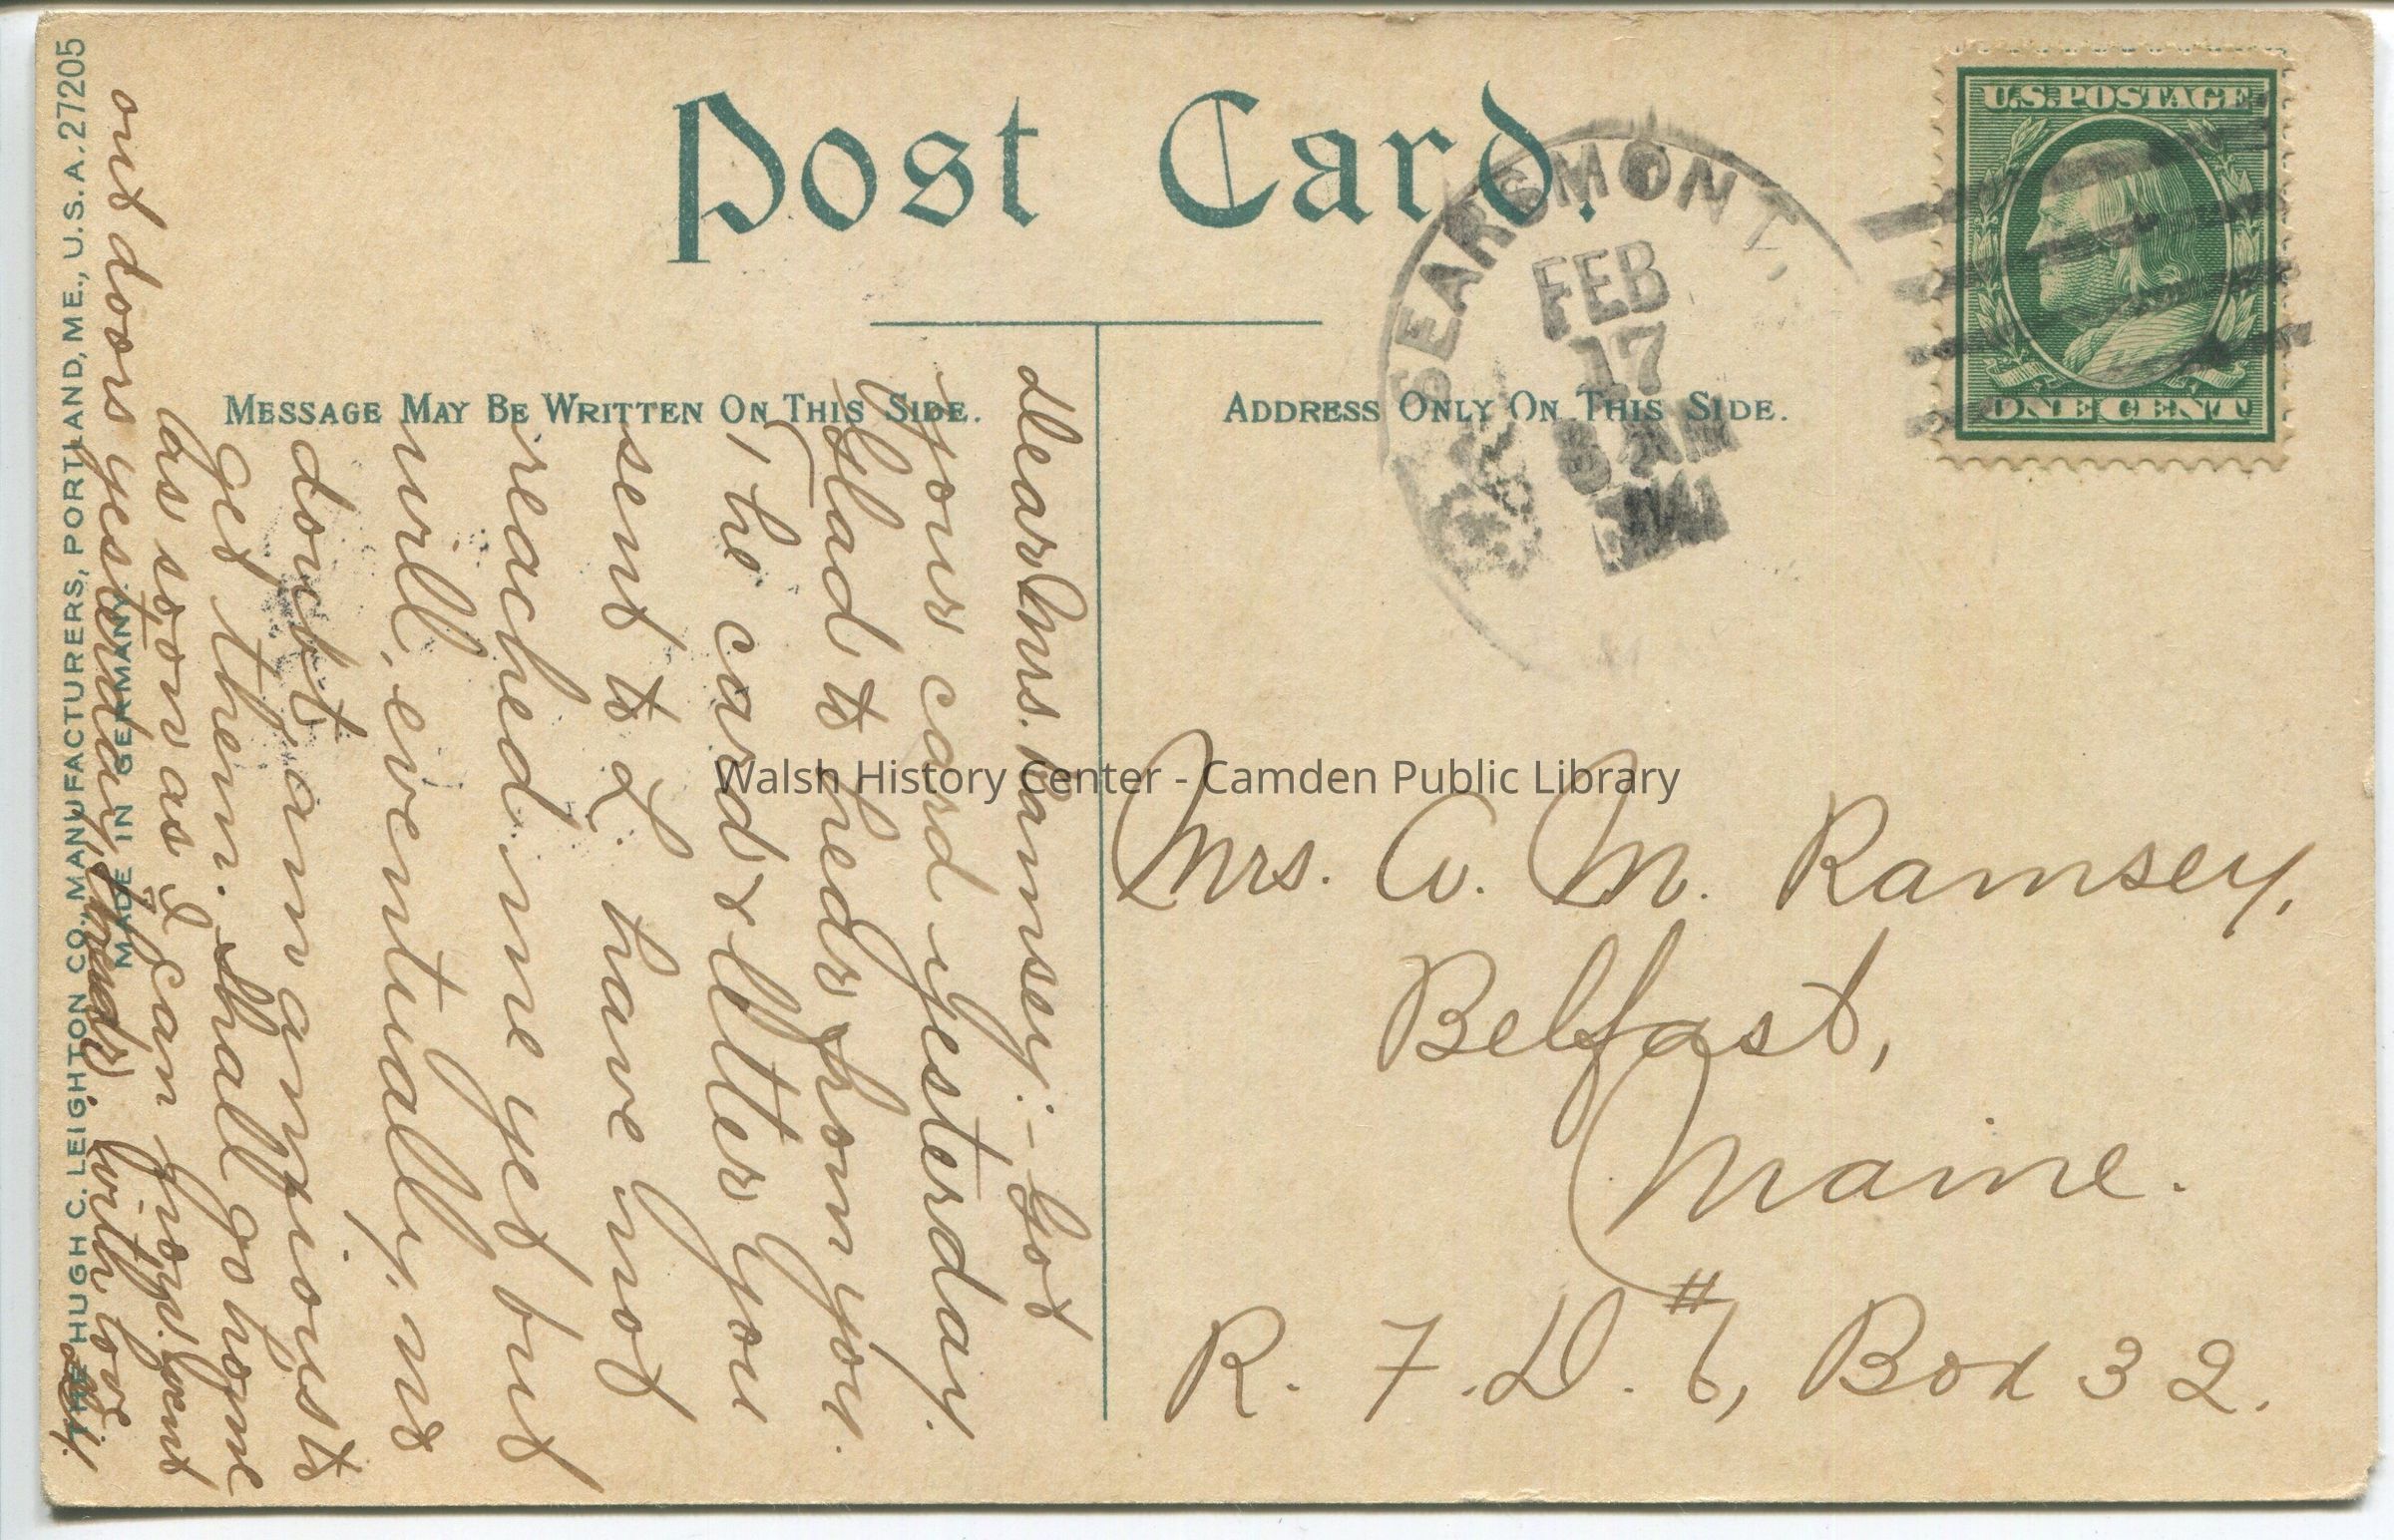 Post Card.
U.S. POSTAGE
ONE CENT
SEARSMONT,
FEB
17
8 AM
MESSAGE MAY BE WRITTEN ON THIS SIDE.
ADDRESS ONLY ON THIS SIDE.
Dear Mrs. Ramsey:- Got
your card yesterday.
Glad to hear from you.
The card & letter you
sent to L. have not
reached me yet but
will, eventually, no
doubt am anxious to
get them. Shall go home
as soon as I can
out doors yesterday,
with love
Mrs. A. M. Ramsey,
Belfast,
Maine.
R. F. D. #6, Box 32.
THE HUGH C. LEIGHTON CO., MANUFACTURERS, PORTLAND, ME., U.S.A. 27205
MADE IN GERMANY
Walsh History Center - Camden Public Library